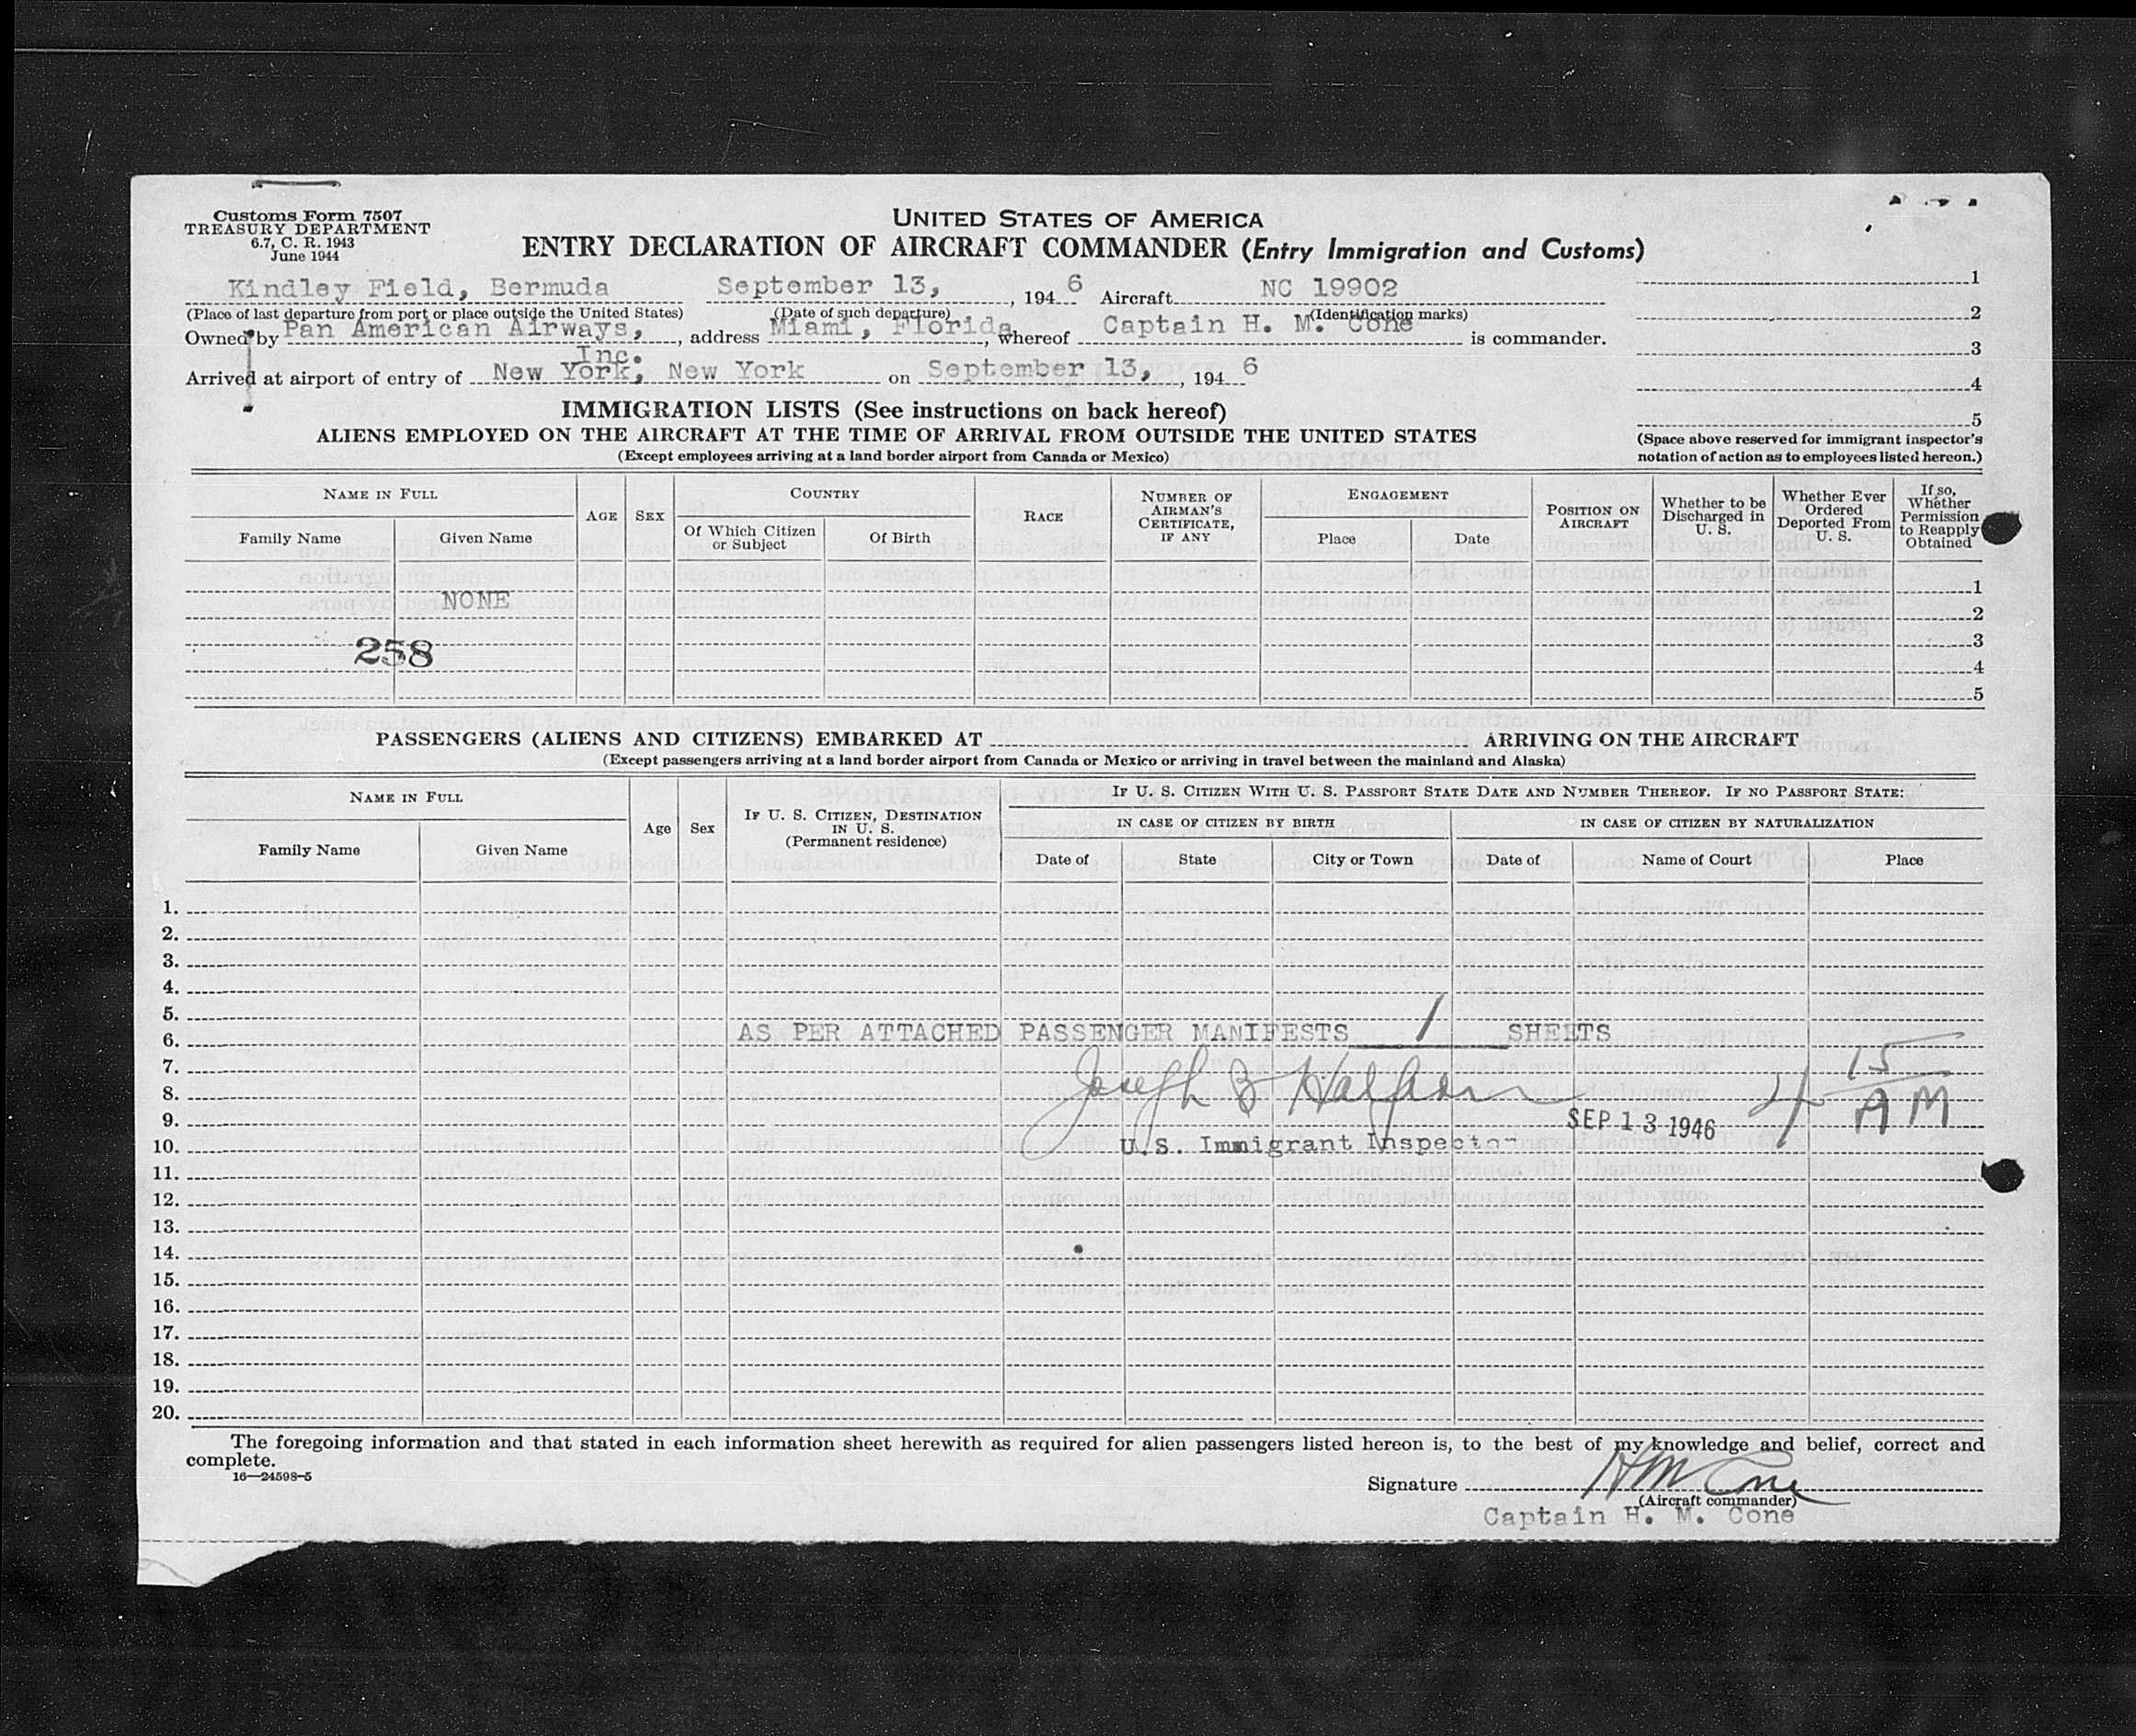 Customs Form 7507
TREASURY DEPARTMENT
6.7, C. R. 1943
June 1944
UNITED STATES OF AMERICA
ENTRY DECLARATION OF AIRCRAFT COMMANDER (Entry Immigration and Customs)
Kindley Field, Bermuda September 13, , 194 6 Aircraft NC 19902
(Place of last departure from port or place outside the United States) (Date of such departure) (Identification marks)
Owned by Pan American Airways, Inc. , address Miami, Florida , whereof Captain H. M. Cone is commander.
Arrived at airport of entry of New York, New York on September 13, , 194 6
1
2
3
4
5
(Space above reserved for immigrant inspector's
notation of action as to employees listed hereon.)
IMMIGRATION LISTS (See instructions on back hereof)
ALIENS EMPLOYED ON THE AIRCRAFT AT THE TIME OF ARRIVAL FROM OUTSIDE THE UNITED STATES
(Except employees arriving at a land border airport from Canada or Mexico)
NAME IN FULL
Family Name
Given Name
AGE
SEX
COUNTRY
Of Which Citizen
or Subject
Of Birth
RACE
NUMBER OF
AIRMAN'S
CERTIFICATE,
IF ANY
ENGAGEMENT
Place
Date
POSITION ON
AIRCRAFT
Whether to be
Discharged in
U. S.
Whether Ever
Ordered
Deported From
U. S.
If so,
Whether
Permission
to Reapply
Obtained
1
NONE
2
258
3
4
5
PASSENGERS (ALIENS AND CITIZENS) EMBARKED AT ARRIVING ON THE AIRCRAFT
(Except passengers arriving at a land border airport from Canada or Mexico or arriving in travel between the mainland and Alaska)
NAME IN FULL
Family Name
Given Name
Age
Sex
IF U. S. CITIZEN, DESTINATION
IN U. S.
(Permanent residence)
IF U. S. CITIZEN WITH U. S. PASSPORT STATE DATE AND NUMBER THEREOF. IF NO PASSPORT STATE:
IN CASE OF CITIZEN BY BIRTH
IN CASE OF CITIZEN BY NATURALIZATION
Date of
State
City or Town
Date of
Name of Court
Place
1.
2.
3.
4.
5.
6. AS PER ATTACHED PASSENGER MANIFESTS 1 SHEETS
7.
8. Joseph B 4 15 AM
9. SEP 13 1946
10. U.S. Immigrant Inspector
11.
12.
13.
14.
15.
16.
17.
18.
19.
20.
The foregoing information and that stated in each information sheet herewith as required for alien passengers listed hereon is, to the best of my knowledge and belief, correct and
complete.
16—24598-5
Signature HM Cone
(Aircraft commander)
Captain H. M. Cone